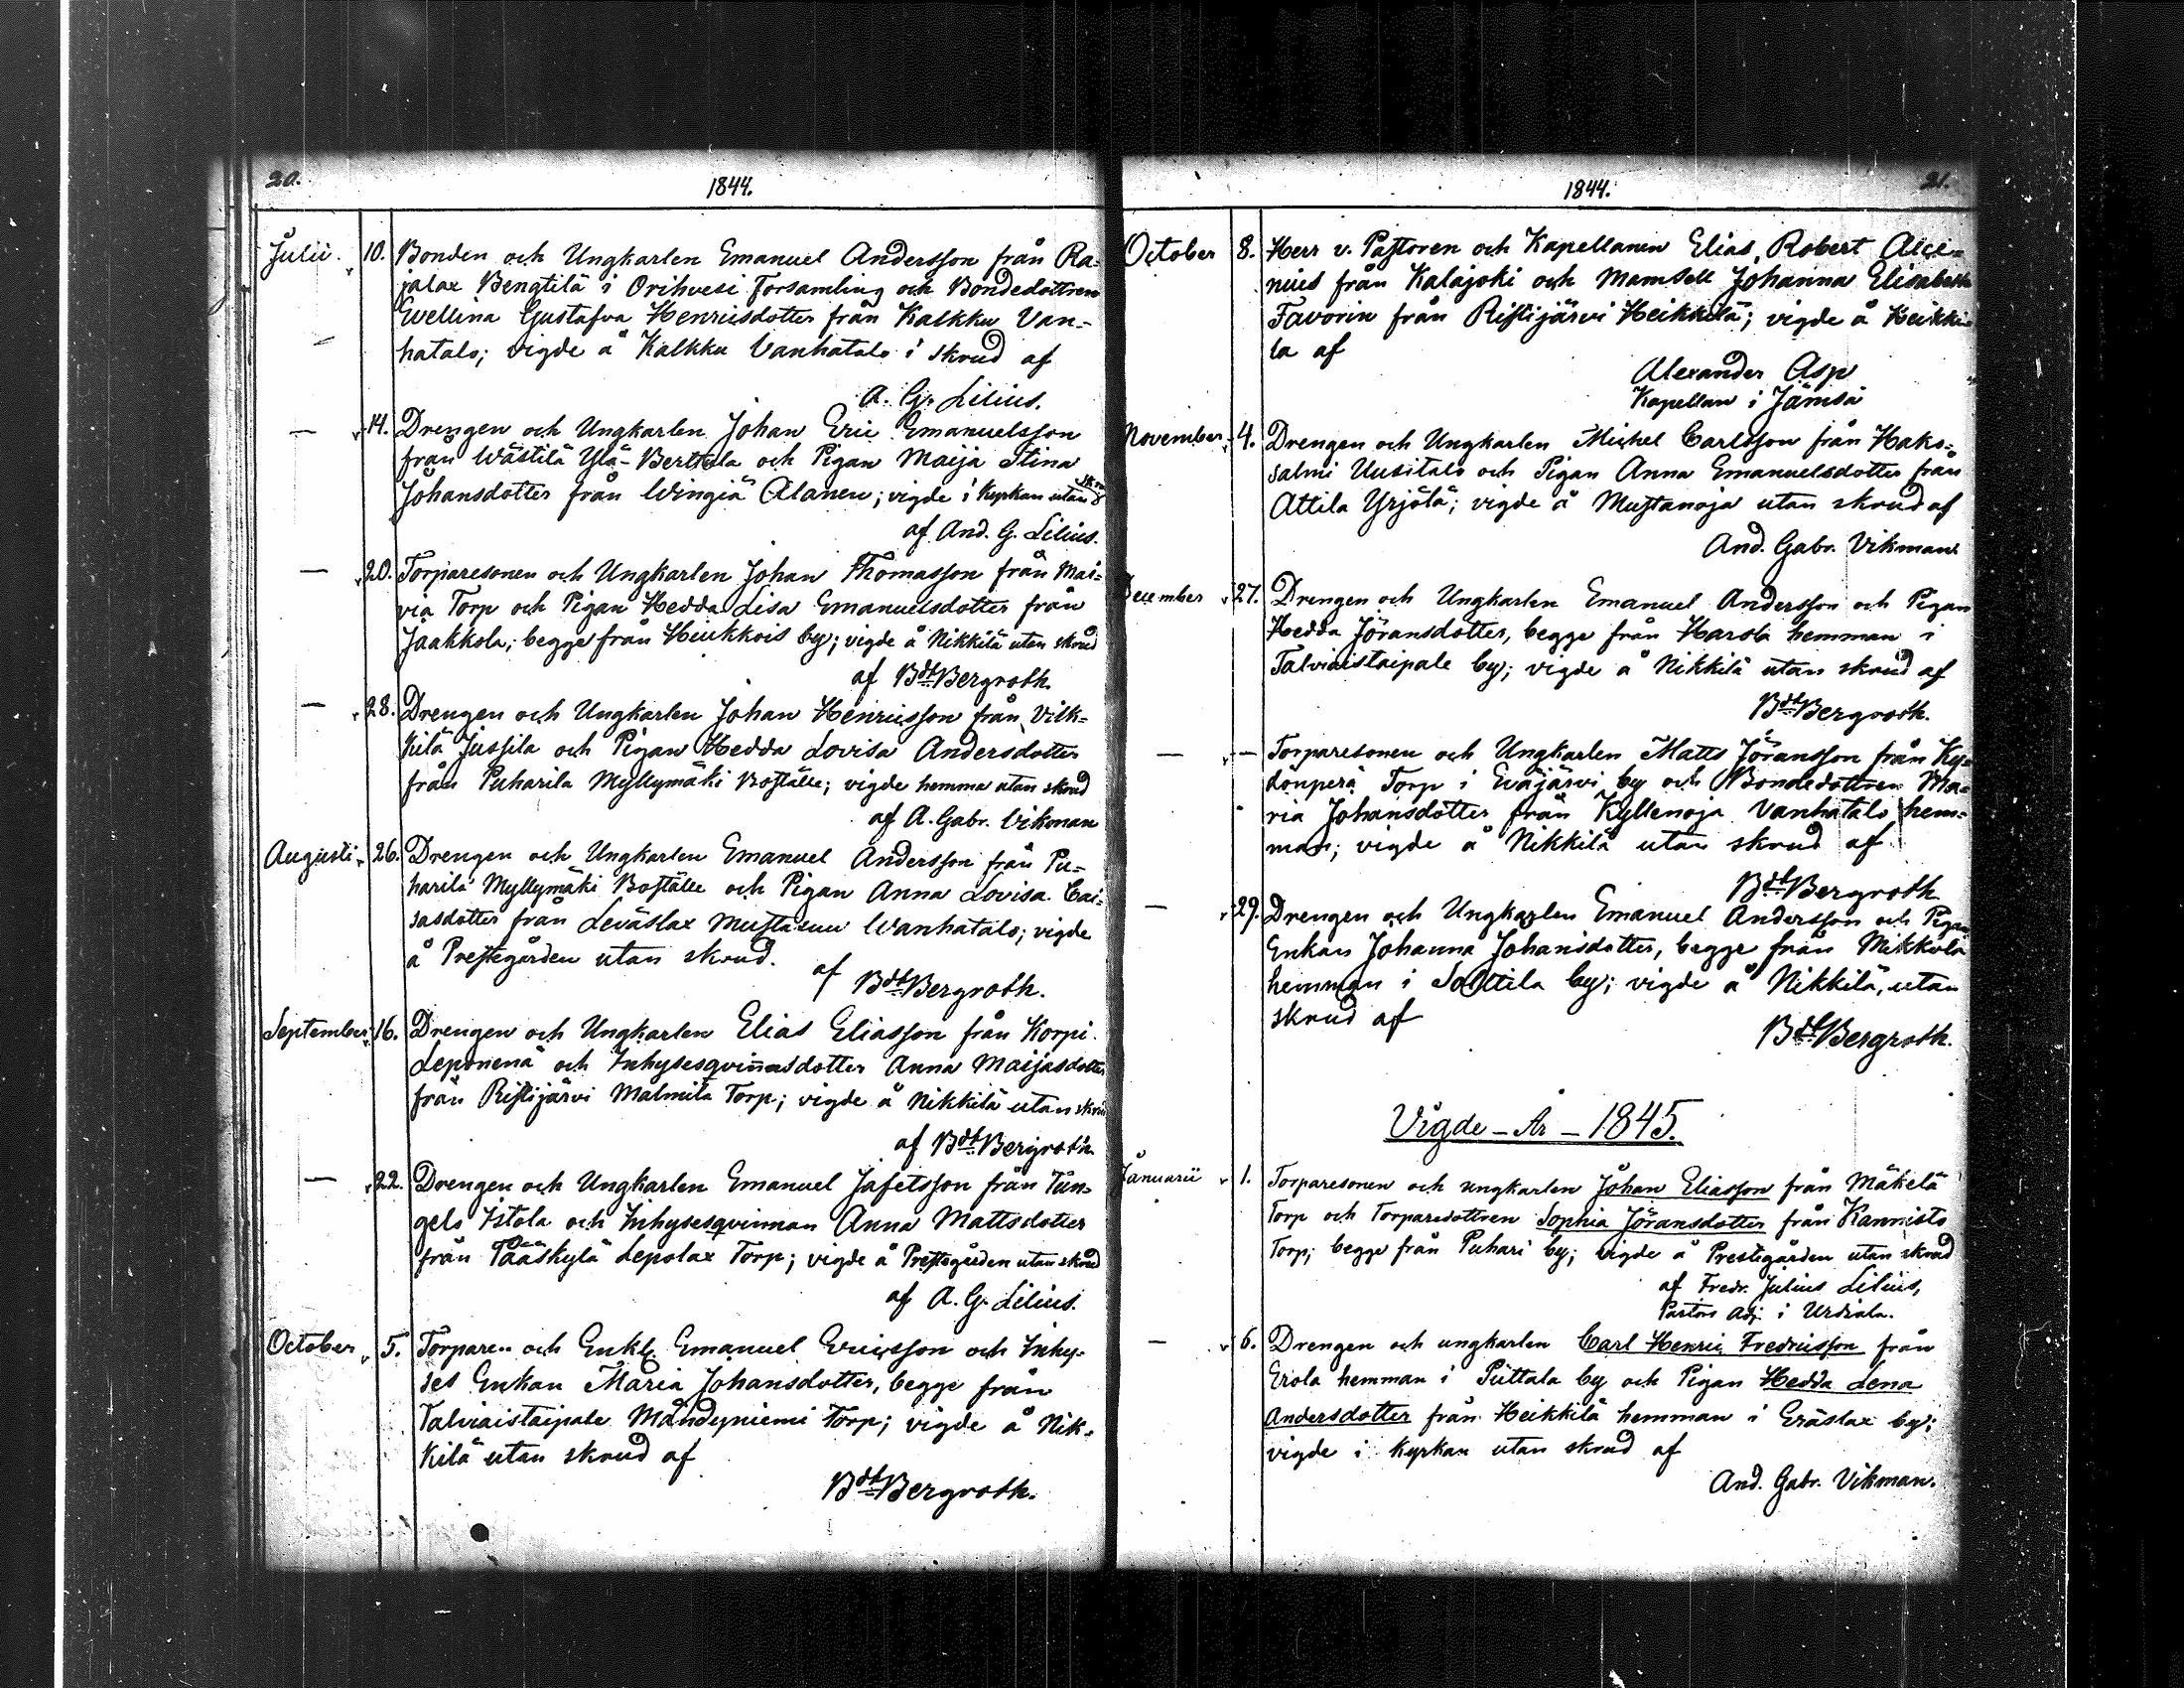 20.
1844.
Julii. 10. Bonden och Ungkarlen Emanuel Andersson från Ra-
jalax Bengtilä i Orihvesi Forsamling och Bondedottren
Evellina Gustafva Henricsdotter från Kalkku Van-
hatalo; vigde å Kalkku Vanhatalo i skrud af
A. G. Lilius.
— 14. Drengen och Ungkarlen Johan Eric Emanuelsson
från Wästilä Ylä-Berttula och Pigan Maija Stina
Johansdotter från Wingiä Alanen; vigde i Kyrkan utan skrud
af And. G. Lilius.
— 20. Torparesonen och Ungkarlen Johan Thomasson från Mai-
via Torp och Pigan Hedda Lisa Emanuelsdotter från
Jaakkola; begge från Heukkois by; vigde å Nikkilä utan skrud
af Bdt Bergroth.
— 28. Drengen och Ungkarlen Johan Henricsson från Vilk-
kilä Jussila och Pigan Hedda Lovisa Andersdotter
från Puharila Myllymäki Boställe; vigde hemma utan skrud
af A. Gabr. Vikman
Augusti 26. Drengen och Ungkarlen Emanuel Andersson från Pu-
harila Myllymäki Boställe och Pigan Anna Lovisa Cai-
sasdotter från Leväslax Mustasuu Wanhatalo; vigde
å Prestegården utan skrud. af
Bdt Bergroth.
September 16. Drengen och Ungkarlen Elias Eliasson från Korpi
Leponenä och Inhysesqvinnasdotter Anna Maijasdotter
från Ristijärvi Malmila Torp; vigde å Nikkilä utan skrud
af Bdt Bergroth.
— 22. Drengen och Ungkarlen Emanuel Jafetsson från Tun-
gelo Istola och Inhysesqvinnan Anna Mattsdotter
från Pääskylä Lepolax Torp; vigde å Prestegården utan skrud
af A. G. Lilius.
October 5. Torparen och Enkl. Emanuel Ericsson och Inhy-
ses Enkan Maria Johansdotter, begge från
Talviaistaipale Mändyniemi Torp; vigde å Nik-
kilä utan skrud af
Bdt Bergroth.
1844.
21.
October 8. Herr v. Pastoren och Kapellanen Elias Robert Alce-
nius från Kalajoki och Mamsell Johanna Elisabeth
Favorin från Ristijärvi Heikkilä; vigde å Heikki-
la af
Alexander Asp
Kapellan i Jämsä
November 4. Drengen och Ungkarlen Michel Carlsson från Hako-
salmi Uusitalo och Pigan Anna Emanuelsdotter från
Attila Yrjölä; vigde å Mustanoja utan skrud af
And. Gabr. Vikman
December 27. Drengen och Ungkarlen Emanuel Andersson och Pigan
Hedda Jöransdotter, begge från Harola hemman i
Talviaistaipale by; vigde å Nikkilä utan skrud af
Bdt Bergroth.
— — Torparesonen och Ungkarlen Matts Jöransson från Ky-
dönperä Torp i Eväjärvi by och Bondedottren Ma-
ria Johansdotter från Kyllenoja Vanhatalo hem-
man; vigde å Nikkilä utan skrud af
Bdt Bergroth
— 29. Drengen och Ungkarlen Emanuel Andersson och Pigan
Enkan Johanna Johansdotter, begge från Mikkola
hemman i Solttila by; vigde å Nikkilä, utan
skrud af
Bdt Bergroth.
Vigde – År – 1845.
Januarii 1. Torparesonen och ungkarlen Johan Eliasson från Mäkelä
Torp och Torparedottren Sophia Jöransdotter från Kannisto
Torp; begge från Puhari by; vigde å Prestegården utan skrud
af Fredr. Julius Lilius,
Pastors Adj. i Urdiala.
— 6. Drengen och ungkarlen Carl Henric Fredricsson från
Erola hemman i Puttala by och Pigan Hedda Lena
Andersdotter från Heikkilä hemman i Eräslax by;
vigde i Kyrkan utan skrud af
And. Gabr. Vikman.